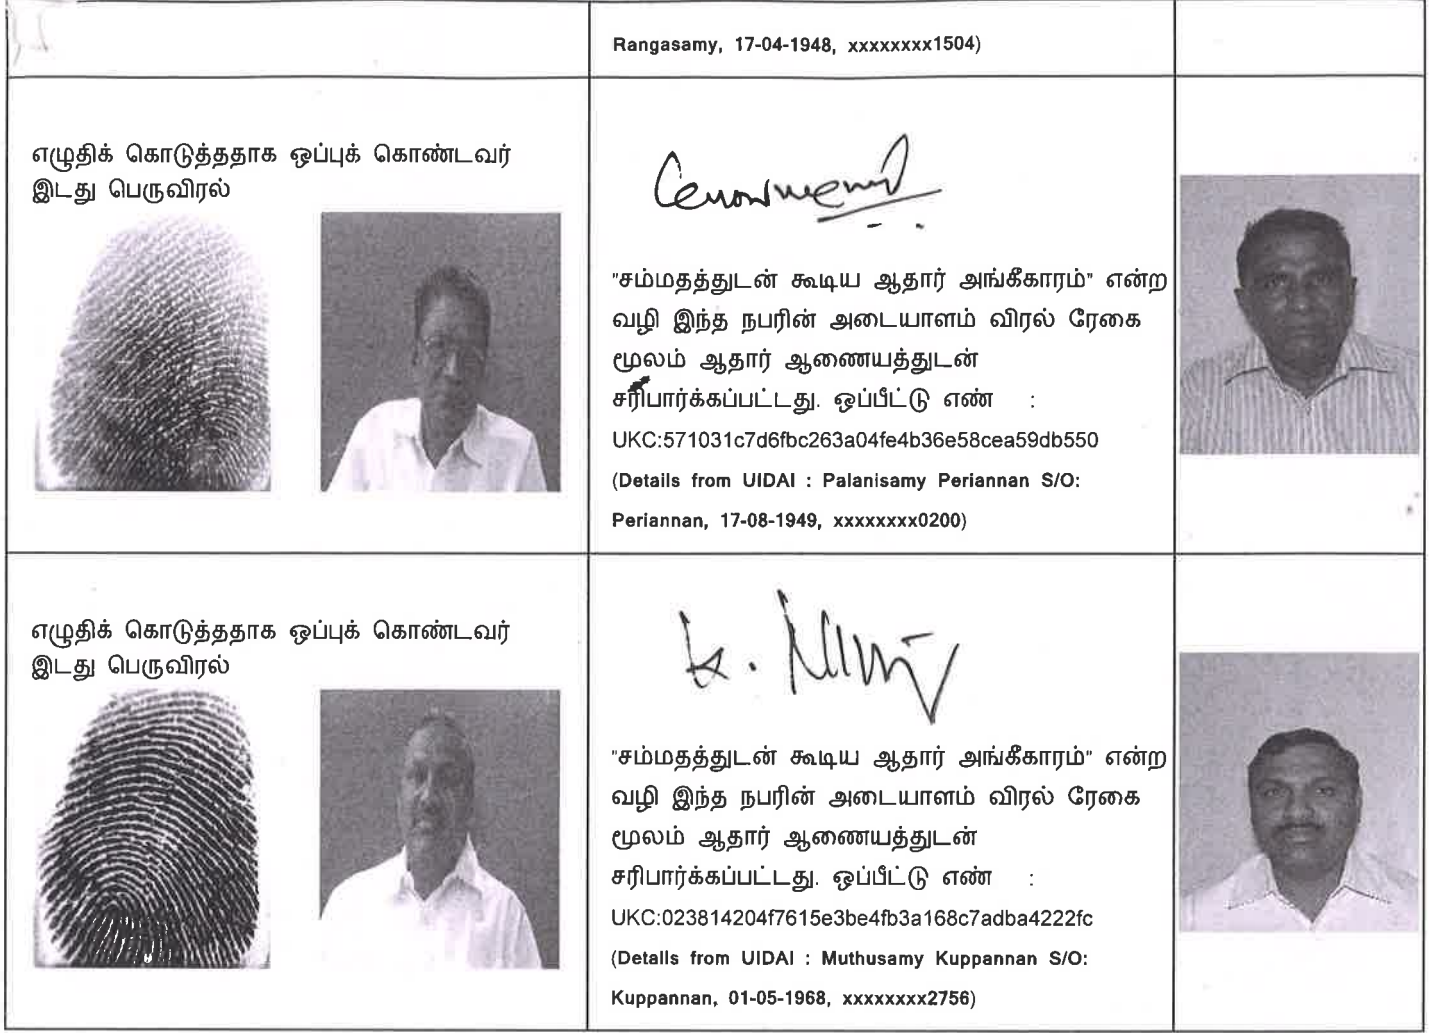 Rangasamy, 17-04-1948, xxxxxxxx1504)
எழுதிக் கொடுத்ததாக ஒப்புக் கொண்டவர்
இடது பெருவிரல்
"சம்மதத்துடன் கூடிய ஆதார் அங்கீகாரம்" என்ற
வழி இந்த நபரின் அடையாளம் விரல் ரேகை
மூலம் ஆதார் ஆணையத்துடன்
சரிபார்க்கப்பட்டது. ஒப்பீட்டு எண் :
UKC:571031c7d6fbc263a04fe4b36e58cea59db550
(Details from UIDAI : Palanisamy Periannan S/O:
Periannan, 17-08-1949, xxxxxxxx0200)
எழுதிக் கொடுத்ததாக ஒப்புக் கொண்டவர்
இடது பெருவிரல்
"சம்மதத்துடன் கூடிய ஆதார் அங்கீகாரம்" என்ற
வழி இந்த நபரின் அடையாளம் விரல் ரேகை
மூலம் ஆதார் ஆணையத்துடன்
சரிபார்க்கப்பட்டது. ஒப்பீட்டு எண் :
UKC:023814204f7615e3be4fb3a168c7adba4222fc
(Details from UIDAI : Muthusamy Kuppannan S/O:
Kuppannan, 01-05-1968, xxxxxxxx2756)